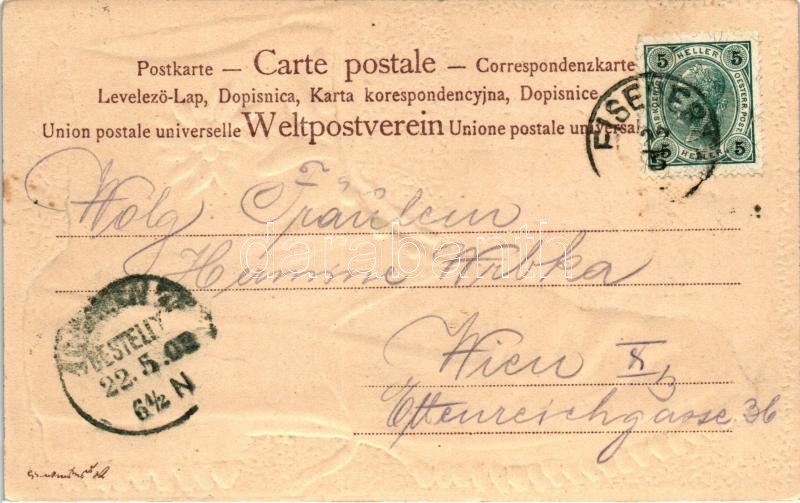 Postkarte — Carte postale — Correspondenzkarte
Levelező-Lap, Dopisnica, Karta korespondencyjna, Dopisnice
Union postale universelle Weltpostverein Unione postale universal
5 HELLER 5
OESTERR. POST
5 HELLER 5
EISENERZ
Wolg. Fräulein
Wrbka
Wien X/2
Ettenreichgasse 36
BESTELLT
22.5.03
6½ N
darabanth